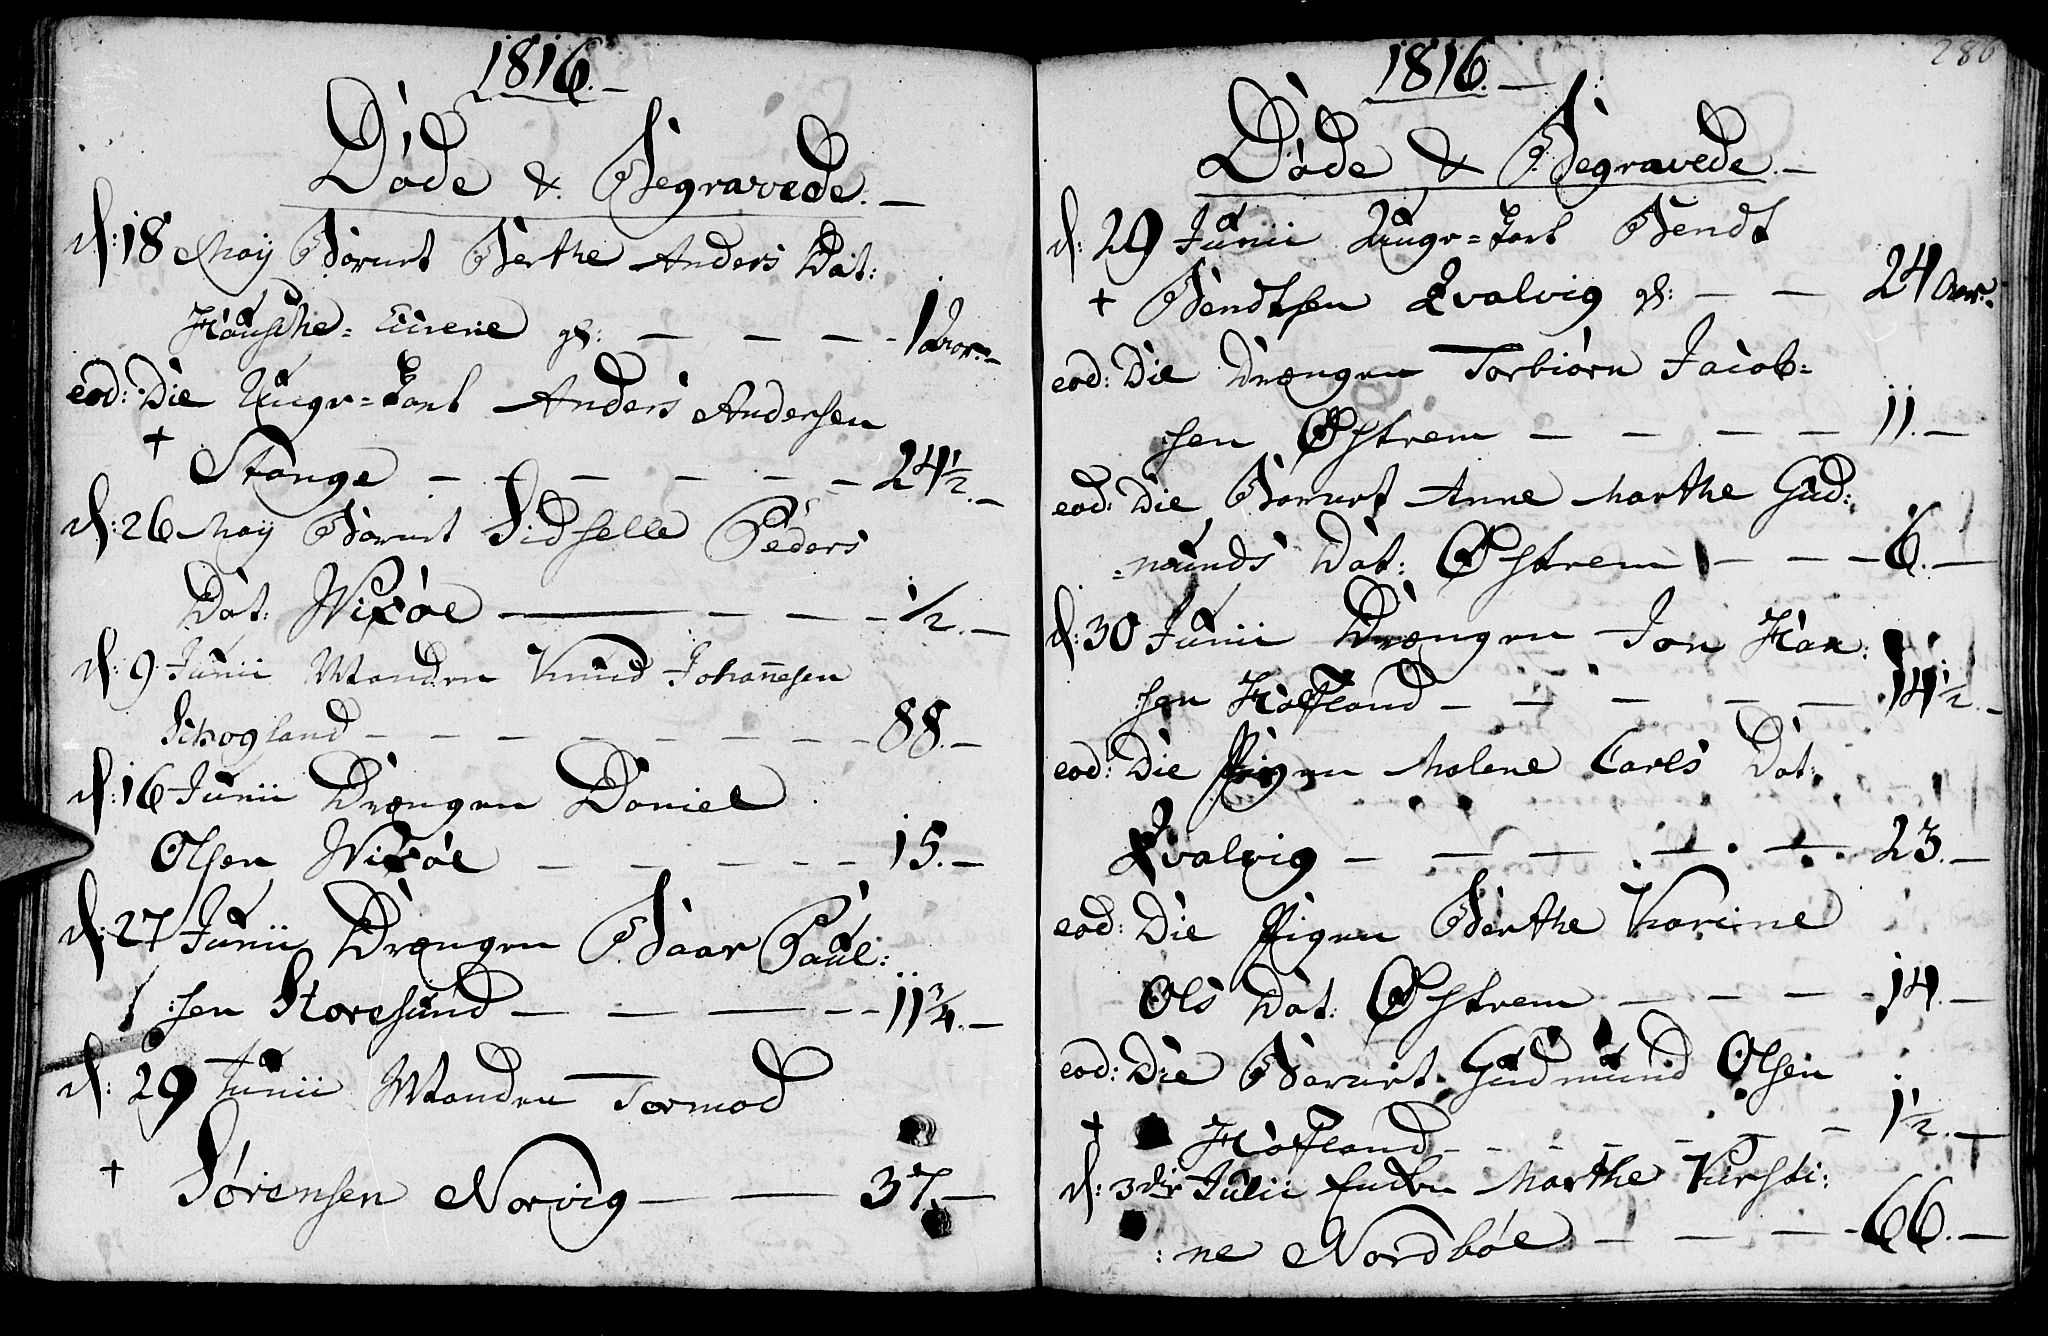 1816.-
Døde & Begravede.-
d: 18 Maij Barnet Berthe Anders Dat:
Hauske- gl: - - - - 1 Aar.-
eod: Die Ungr-Karl Anders Andersen
+ Stange - - - - - - 24 1/2.-
d: 26 Maij Barnet Sidselle Peders
Dat: Wixøe - - - - 1/2.-
d: 9 Junii Manden Knud Johan̄esen
Schogland - - - - - - - - 88.-
d: 16 Junii Drængen Daniel
Olsen Wixøe - - - - - - 15.-
d: 27 Junii Drængen Baar Paul:
:sen Storesund - - - - - 11 3/4.-
d: 29 Junii Manden Tormod
+ Sørensen Norvig - - 37.-
286
1816.-
Døde & Begravede.-
d: 29 Junii Ungr-Karl Bendt
+ Bendtsen Qvalvig gl: - - 24 Aar.-
eod: Die Drængen Torbiørn Jacob=
:sen Østrem - - - - 11.-
eod: Die Barnet Anne Marthe Gud:
=munds Dat: Østrem - - - 6.-
d: 30 Junii Drængen Jon Han:
:sen Hafland - - - - - 14 1/2.-
eod: Die Pigen Malene Carls Dat:
Qvalvig - - - - - 23.-
eod: Die Pigen Berthe Karine
Ols Dat: Østrem - - - - 14.-
eod: Die Barnet Gudmund Olsen
+ Hafland - - - - - - 1 1/2.-
d: 3die Julii Enken Marthe Kirsti:
:ne Nordbøe - - - - 66.-